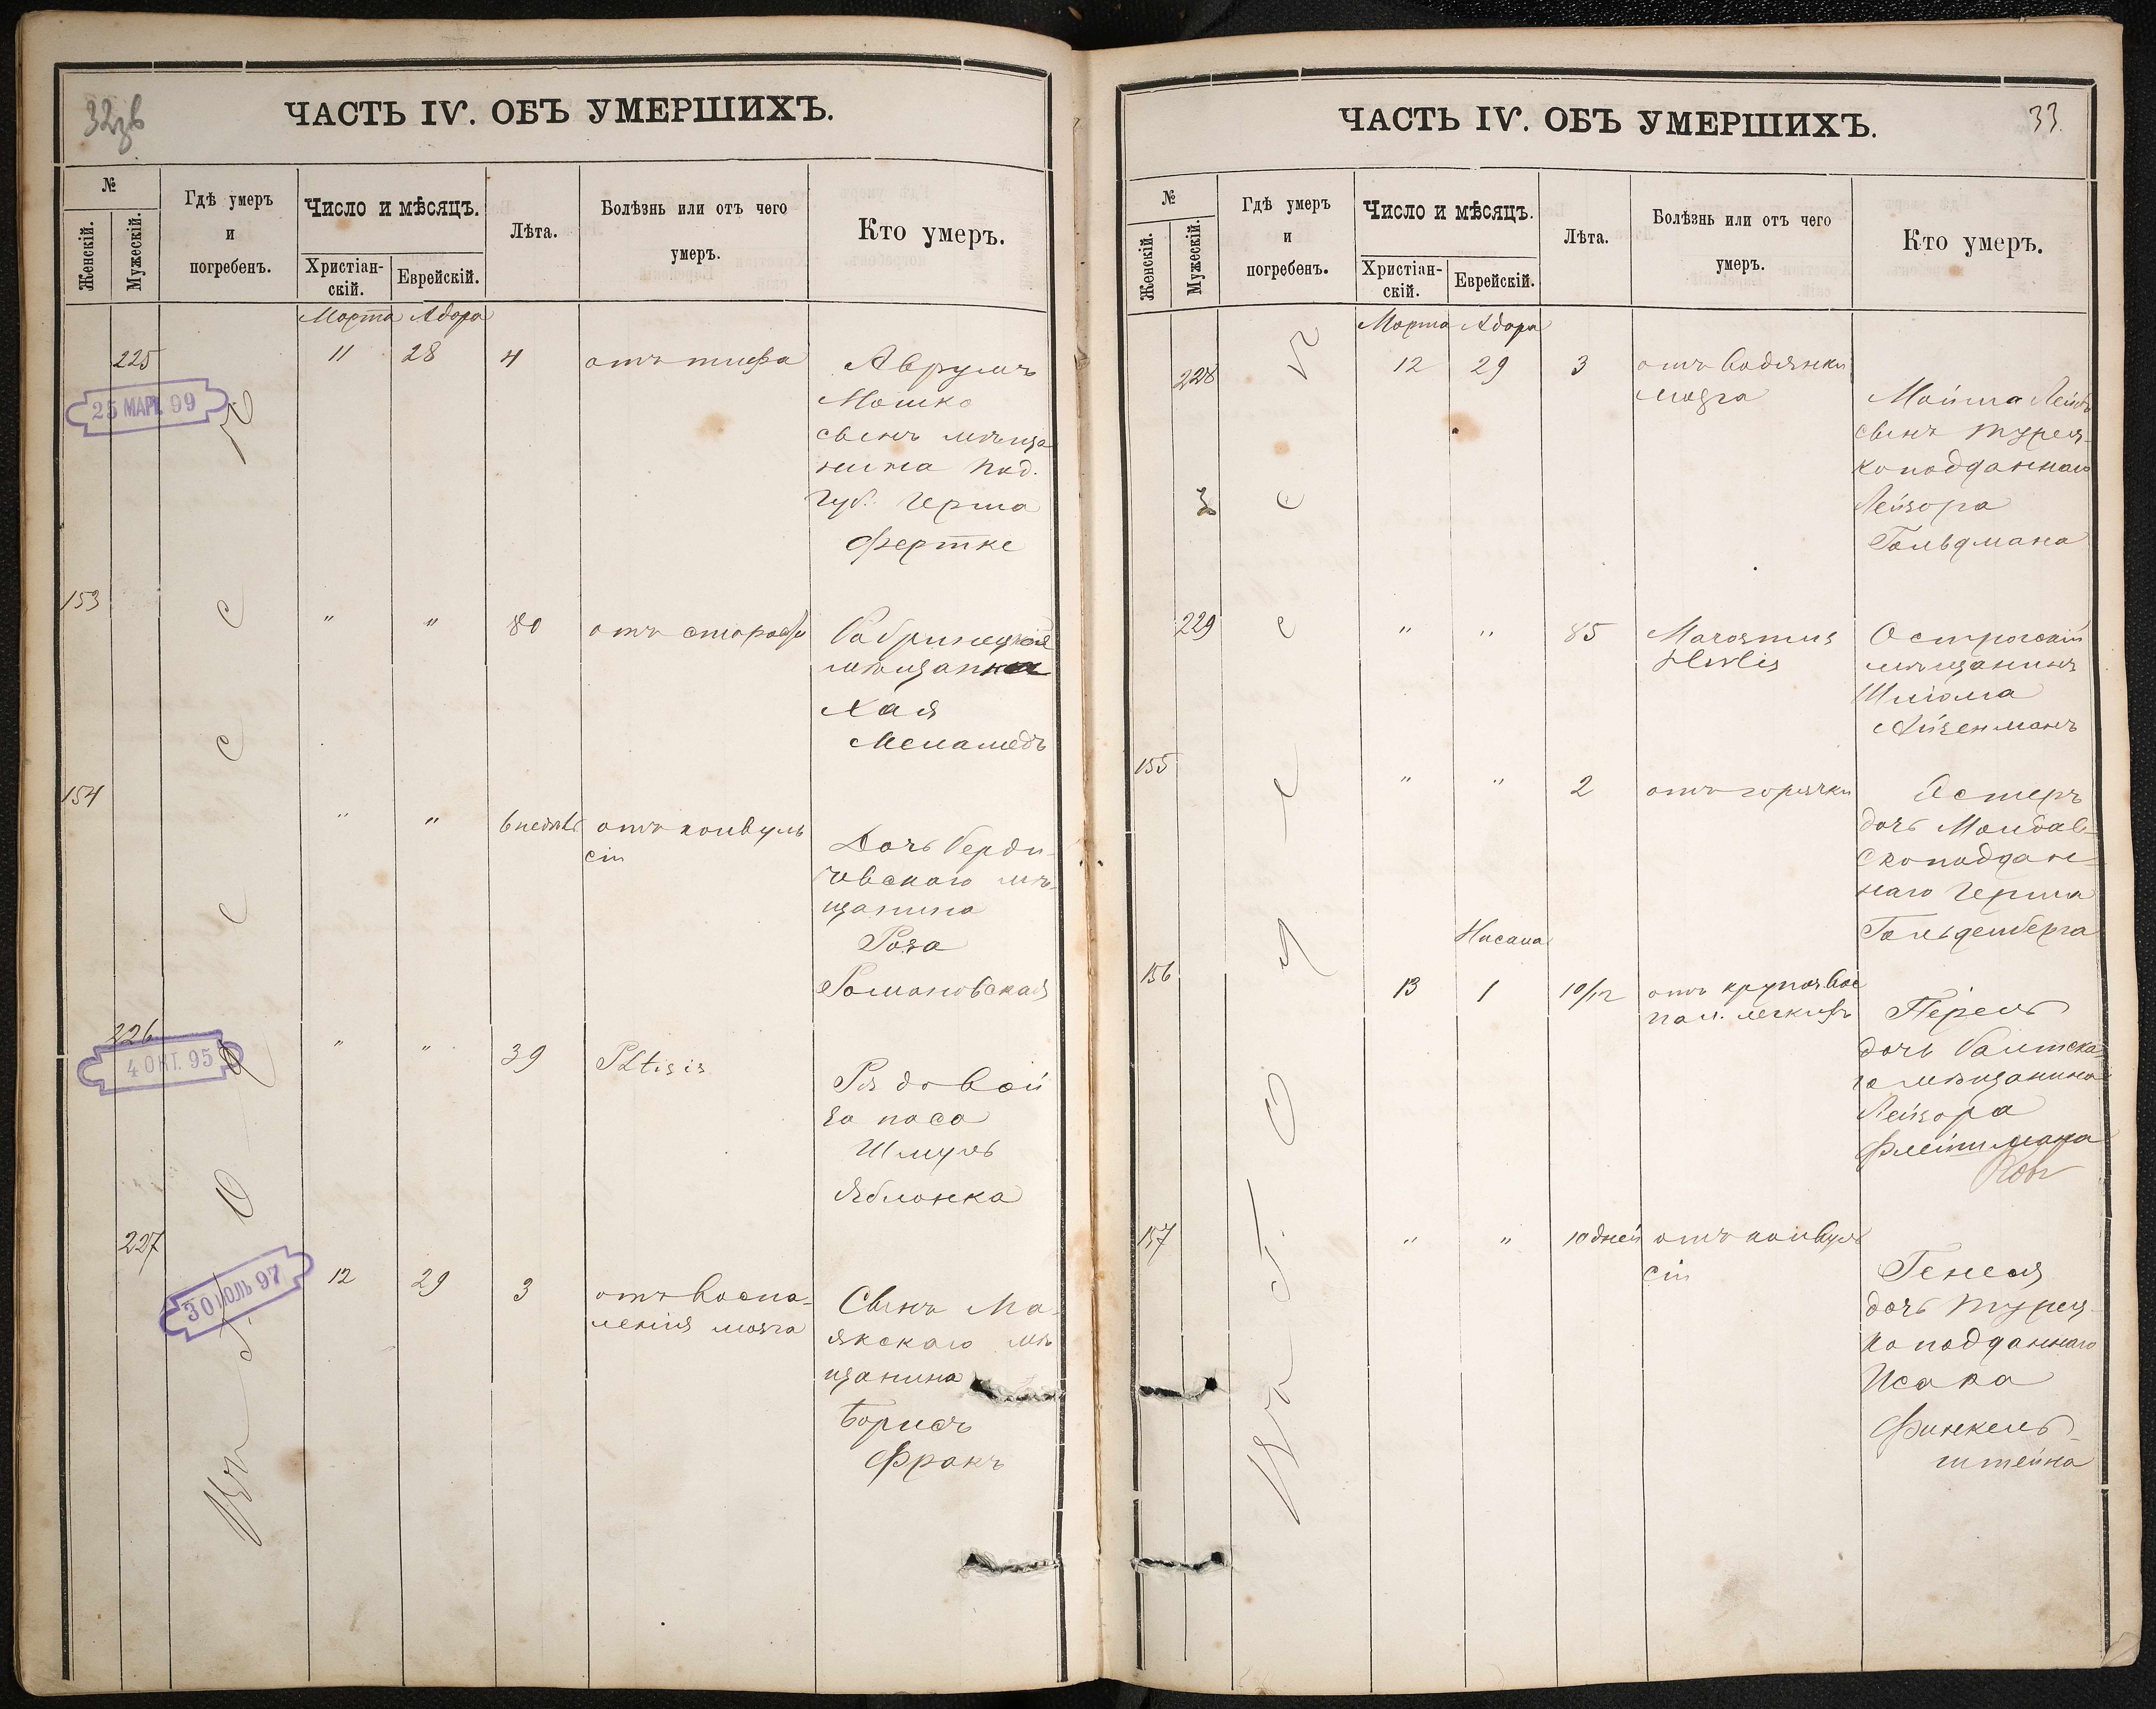 32
ЧАСТЬ IV. ОБЪ УМЕРШИХЪ.
№
Женскій.
Мужескій.
Гдѣ умеръ
и
погребенъ.
Число и мѣсяцъ.
Христіан-
скій.
Еврейскій.
Лѣта.
Болѣзнь или отъ чего
умеръ.
Кто умеръ.
Марта Адара
225
11 28 4 отъ тифа
Аврумъ
Мошко
сынъ мѣща
нина Под.
губ. Герша
Фертке
25 МАР. 99
153
" " 80 отъ старости
мѣщанка
Хая
Меламедъ
154
" " 6 недѣль отъ конвуль
сіи
Дочь Берди-
чевскаго мѣ-
щанина
Роза
Романовская
226
4 ОКТ. 95
" " 39 Phtisis
Рядовой
запаса
Шмуль
Яблонка
227
30 ІЮЛЬ 97
12 29 3 отъ воспа-
ленія мозга
Сынъ Ма-
якскаго мѣ
щанина
Борисъ
Франкъ
Въ г. Одессе
33.
ЧАСТЬ IV. ОБЪ УМЕРШИХЪ.
№
Женскій.
Мужескій.
Гдѣ умеръ
и
погребенъ.
Число и мѣсяцъ.
Христіан-
скій.
Еврейскій.
Лѣта.
Болѣзнь или отъ чего
умеръ.
Кто умеръ.
Марта Адара
228
12 29 3 отъ водянки
мозга
Мойша Лейбъ
сынъ турец-
коподданнаго
Лейзора
Гольдмана
229
" " 85 Marasmus
Острогскій
мѣщанинъ
Шлёма
Айзенманъ
155
" " 2 отъ горячки
Эстеръ
дочь Молдав-
скоподдан-
наго Герша
Гольденберга
Нисана
156
13 1 10/12 отъ крупознаго вос
пал. легкихъ
Перель
дочь Балтска
го мѣщанина
Лейзора
Флейшмана
157
" " 10 дней отъ конвуль
сіи
Генеся
дочь турец-
коподданнаго
Исака
Финкель-
штейна
Въ г. Одессе